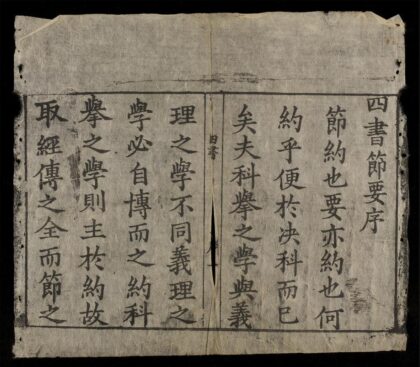 四書節要序
節約也要亦約也何
約乎便於决科而已
矣夫科擧之學與義
理之學不同義理之
學必自博而之約科
擧之學則主於約故
取經傳之全而節之